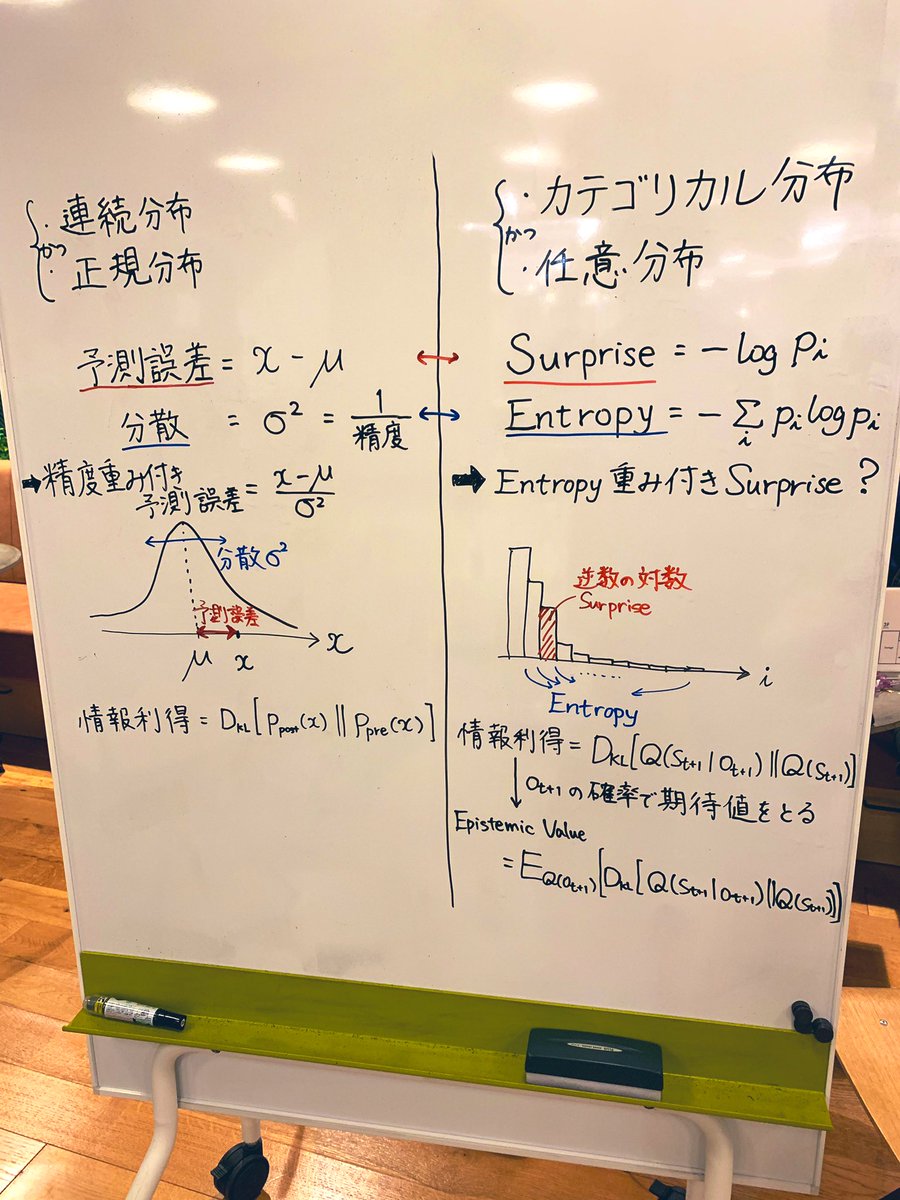 ・連続分布
かつ
・正規分布
予測誤差 = x - μ
分散 = σ² = 1/精度
➡精度重み付き
予測誤差 = (x-μ)/σ²
分散σ²
予測誤差
μ x x
情報利得 = D_KL[P_post(x) || P_pre(x)]
・カテゴリカル分布
かつ
・任意分布
Surprise = -log pi
Entropy = -Σ_i pi log pi
➡ Entropy 重み付き Surprise ?
逆数の対数
Surprise
i
......
Entropy
情報利得 = D_KL[Q(S_t+1 | O_t+1) || Q(S_t+1)]
↓ O_t+1 の確率で期待値をとる
Epistemic Value
= E_Q(O_t+1)[D_KL[Q(S_t+1 | O_t+1) || Q(S_t+1)]]